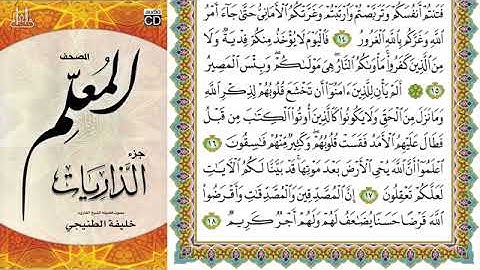 audio
CD
المصحف
المُعلِّم
جزء
الذاريات
بصوت فضيلة الشيخ القارئ
خليفة الطنيجي
فَتَنتُمْ أَنفُسَكُمْ وَتَرَبَّصْتُمْ وَٱرْتَبْتُمْ وَغَرَّتْكُمُ ٱلْأَمَانِىُّ حَتَّىٰ جَآءَ أَمْرُ
ٱللَّهِ وَغَرَّكُم بِٱللَّهِ ٱلْغَرُورُ ١٤ فَٱلْيَوْمَ لَا يُؤْخَذُ مِنكُمْ فِدْيَةٌ وَلَا
مِنَ ٱلَّذِينَ كَفَرُوا۟ مَأْوَىٰكُمُ ٱلنَّارُ هِىَ مَوْلَىٰكُمْ وَبِئْسَ ٱلْمَصِيرُ
١٥ أَلَمْ يَأْنِ لِلَّذِينَ ءَامَنُوٓا۟ أَن تَخْشَعَ قُلُوبُهُمْ لِذِكْرِ ٱللَّهِ
وَمَا نَزَلَ مِنَ ٱلْحَقِّ وَلَا يَكُونُوا۟ كَٱلَّذِينَ أُوتُوا۟ ٱلْكِتَٰبَ مِن قَبْلُ
فَطَالَ عَلَيْهِمُ ٱلْأَمَدُ فَقَسَتْ قُلُوبُهُمْ وَكَثِيرٌ مِّنْهُمْ فَٰسِقُونَ ١٦
ٱعْلَمُوٓا۟ أَنَّ ٱللَّهَ يُحْىِ ٱلْأَرْضَ بَعْدَ مَوْتِهَا قَدْ بَيَّنَّا لَكُمُ ٱلْءَايَٰتِ
لَعَلَّكُمْ تَعْقِلُونَ ١٧ إِنَّ ٱلْمُصَّدِّقِينَ وَٱلْمُصَّدِّقَٰتِ وَأَقْرَضُوا۟
ٱللَّهَ قَرْضًا حَسَنًا يُضَٰعَفُ لَهُمْ وَلَهُمْ أَجْرٌ كَرِيمٌ ١٨